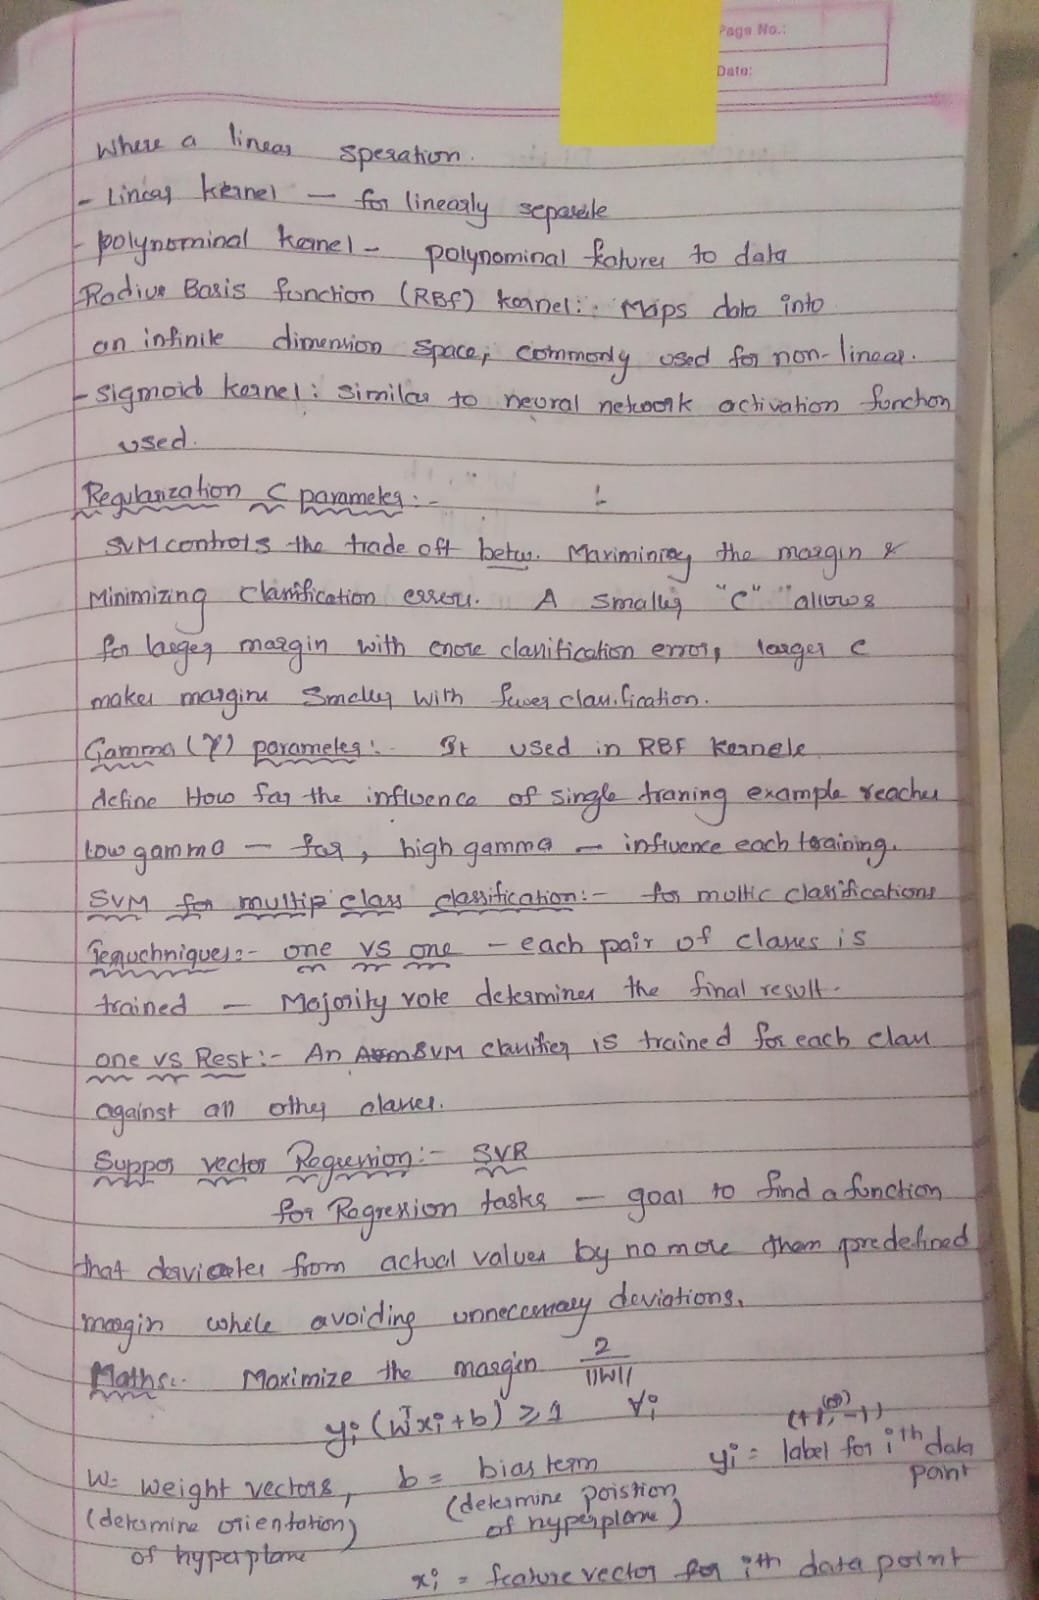 Page No.:
Date:
Where a linear speration.
- Linear kernel — for linearly separable
- polynominal kernel - polynominal fatures to data
Radius Basis function (RBF) kernel:. Maps data into
an infinite dimention space, commonly used for non-linear.
- Sigmoid kernel : Similar to neural network activation function
used.
Regularization C parameter :-
SVM controls the trade off betw. Maximining the margin &
Minimizing Classification errors. A smaller "C" "allows
for larger margin with more classification error, larger C
makes margins smaller with fewer classification.
Gamma (γ) parameter :- It used in RBF kernels
define How far the influence of single traning example reaches
low gamma — far, high gamma — influence each training.
SVM for multip class classification:- for multic classifications
Tequchniques:- one vs one - each pair of classes is
trained — Majority vote determines the final result.
one vs Rest :- An SVM classifier is trained for each class
against all other classes.
Suppor vector Regression:- SVR
for Regression tasks — goal to find a function
that deviates from actual values by no more them predefined
margin while avoiding unnecessary deviations.
Maths:. Maximize the margin 2/||W||
yi (Wᵀxi + b) ≥ 1 ∀i
(+1, (or) -1)
W= weight vectors, b = bias term yi = label for ith data point
(determine orientation) of hyperplane (determine poistion of hyperplane)
xi = feature vector for ith data point